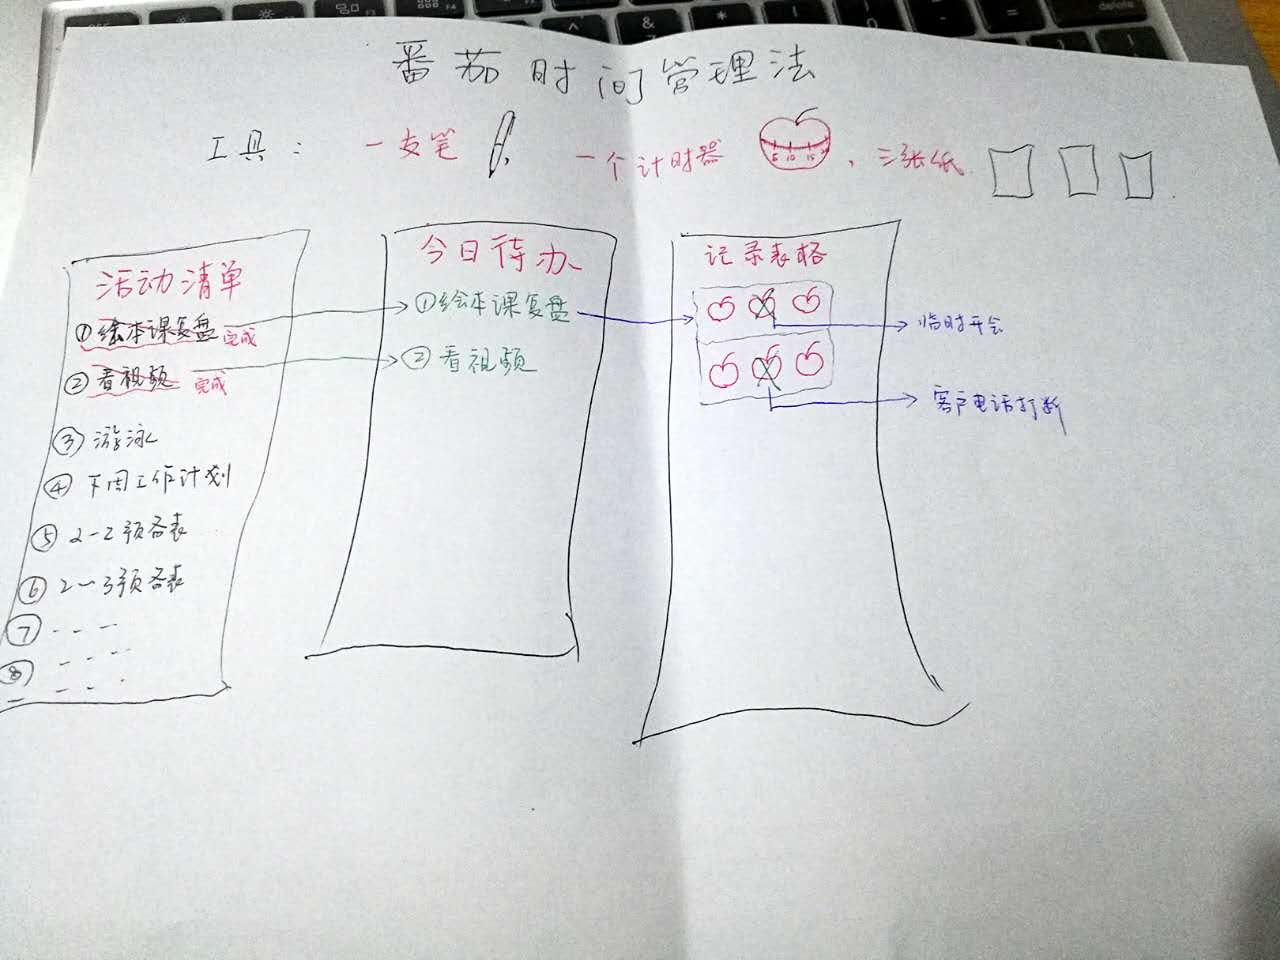 番茄时间管理法
工具： 一支笔 一个计时器 5 10 15 、三张纸
活动清单
①绘本课复盘 完成
②看视频 完成
③游泳
④下周工作计划
⑤2-2预备表
⑥2-3预备表
⑦- - -
⑧- - -
今日待办
①绘本课复盘
②看视频
记录表格
临时开会
客户电话打断